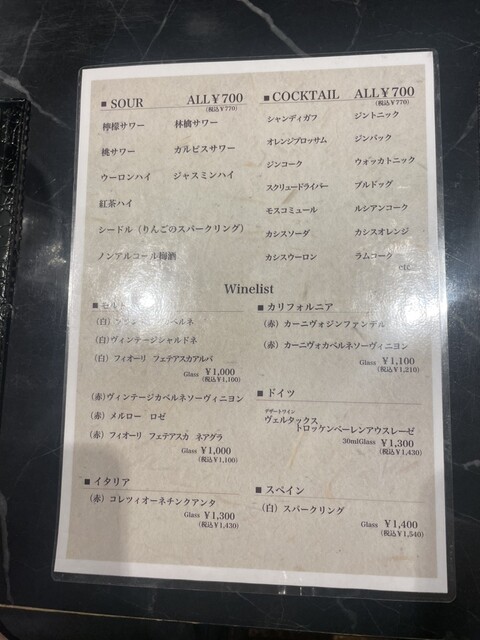 ■ SOUR ALL￥700
(税込￥770)
檸檬サワー 林檎サワー
桃サワー カルピスサワー
ウーロンハイ ジャスミンハイ
紅茶ハイ
シードル（りんごのスパークリング）
ノンアルコール梅酒
■ COCKTAIL ALL￥700
(税込￥770)
シャンディガフ ジントニック
オレンジブロッサム ジンバック
ジンコーク ウォッカトニック
スクリュードライバー ブルドッグ
モスコミュール ルシアンコーク
カシスソーダ カシスオレンジ
カシスウーロン ラムコーク
etc
Winelist
■
（白）
（白）ヴィンテージシャルドネ
（白）フィオーリ フェテアスカアルバ
Glass ￥1,000
(税込￥1,100)
（赤）ヴィンテージカベルネソーヴィニヨン
（赤）メルロー ロゼ
（赤）フィオーリ フェテアスカ ネアグラ
Glass ￥1,000
(税込￥1,100)
■ イタリア
（赤）コレツィオーネチンクアンタ
Glass ￥1,300
(税込￥1,430)
■ カリフォルニア
（赤）カーニヴォジンファンデル
（赤）カーニヴォカベルネソーヴィニヨン
Glass ￥1,100
(税込￥1,210)
■ ドイツ
デザートワイン
ヴェルタックス
トロッケンベーレンアウスレーゼ
30mlGlass ￥1,300
(税込￥1,430)
■ スペイン
（白）スパークリング
Glass ￥1,400
(税込￥1,540)